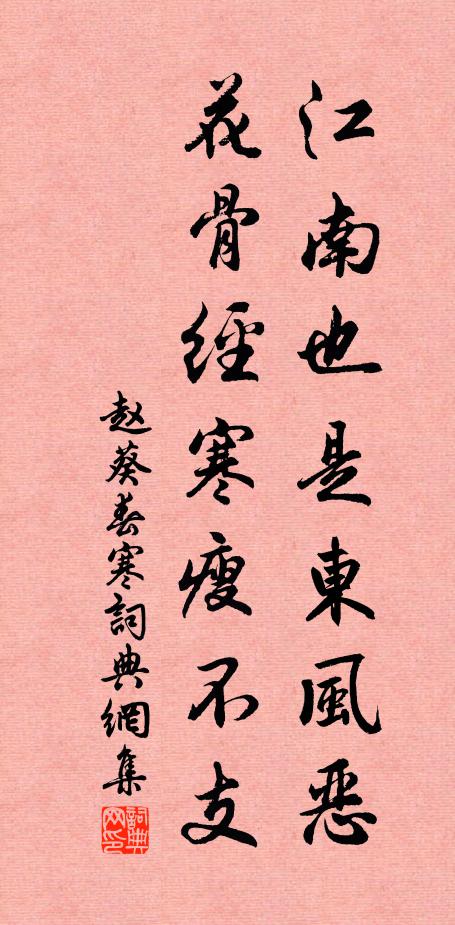 江南也是東風恶
花骨經寒瘦不支
赵葵春寒詞典網集
詞典网印